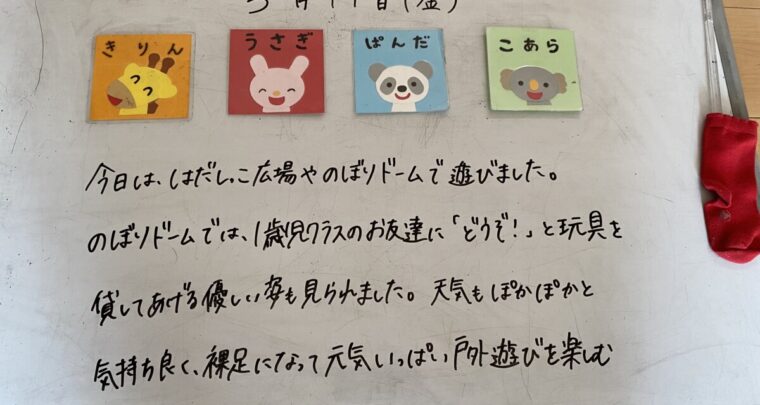 きりん うさぎ ぱんだ こあら
今日は、はだしっこ広場やのぼりドームで遊びました。
のぼりドームでは、1歳児クラスのお友達に「どうぞ!」と玩具を
貸してあげる優しい姿も見られました。天気もぽかぽかと
気持ち良く、裸足になって元気いっぱい戸外遊びを楽しむ